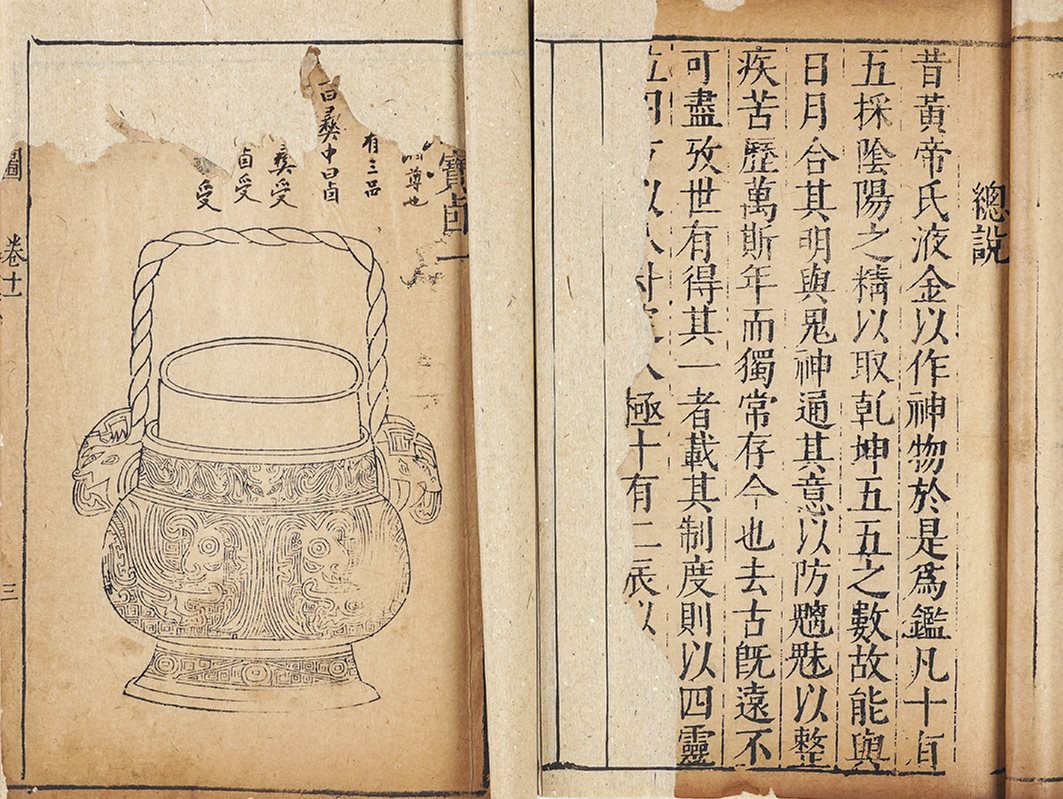 總說
昔黃帝氏液金以作神物於是爲鑑凡十有
五採陰陽之精以取乹坤五五之數故能與
日月合其明與鬼神通其意以防魑魅以整
疾苦歷萬斯年而獨常存今也去古旣遠不
可盡攷世有得其一者載其制度則以四靈
以八極十有二辰以
寶卣一
尊也
有三品
曰彝中曰卣
彝受
卣受
受
圖 卷十一 三